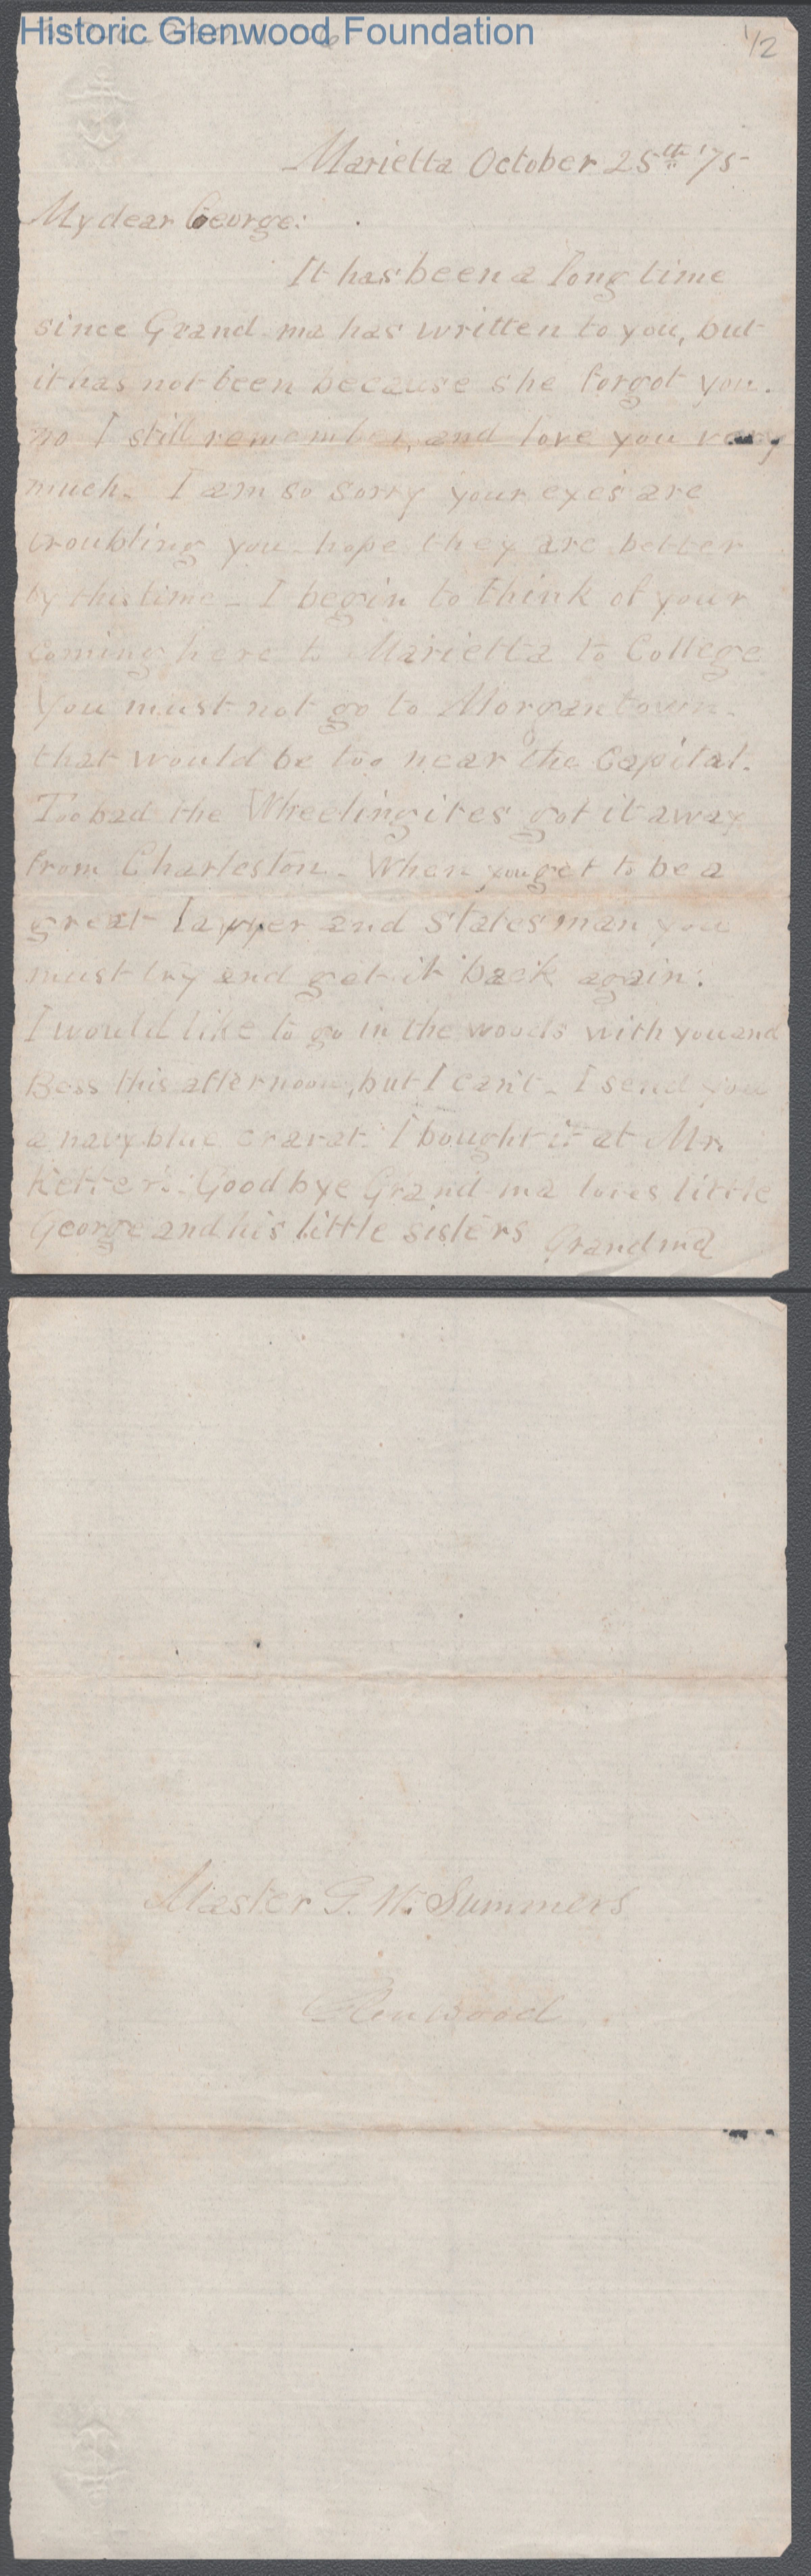 Historic Glenwood Foundation
1/2
Marietta October 25th '75-
My dear George:
It has been a long time
since Grand ma has written to you, but
it has not been because she forgot you.
no I still remember, and love you very
much. I am so sorry your eyes are
troubling you - hope they are better
by this time - I begin to think of your
coming here to Marietta to College
You must not go to Morgantown -
that would be too near the Capital.
Too bad the Wheelingites got it away
from Charleston - When you get to be a
great lawyer and statesman you
must try and get it back again.
I would like to go in the woods with you and
Bess this afternoon, but I can't - I send you
a navy blue cravat. I bought it at Mr.
Good bye Grand ma loves little
George and his little sisters Grandma
Master G. W. Summers
Glenwood